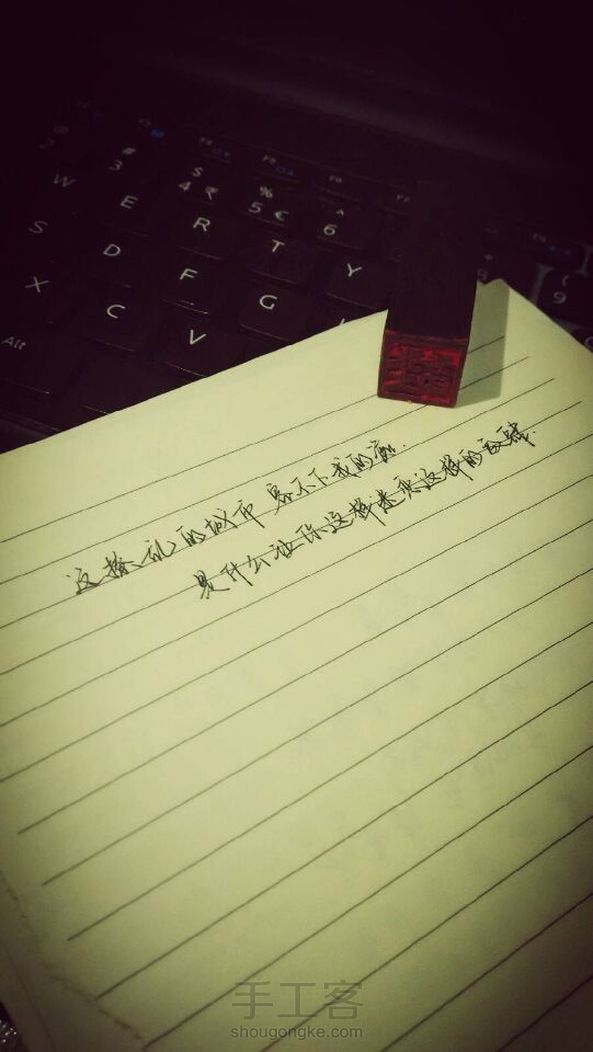 F8
@ # $ % ^
2 3 4 ₹ 5 € 6 8 9
W E R T Y
S D F G
X C V
Alt
这撩乱的城市 容不下我的痴.
是什么让你这样迷恋这样的放肆.
手工客
shougongke.com